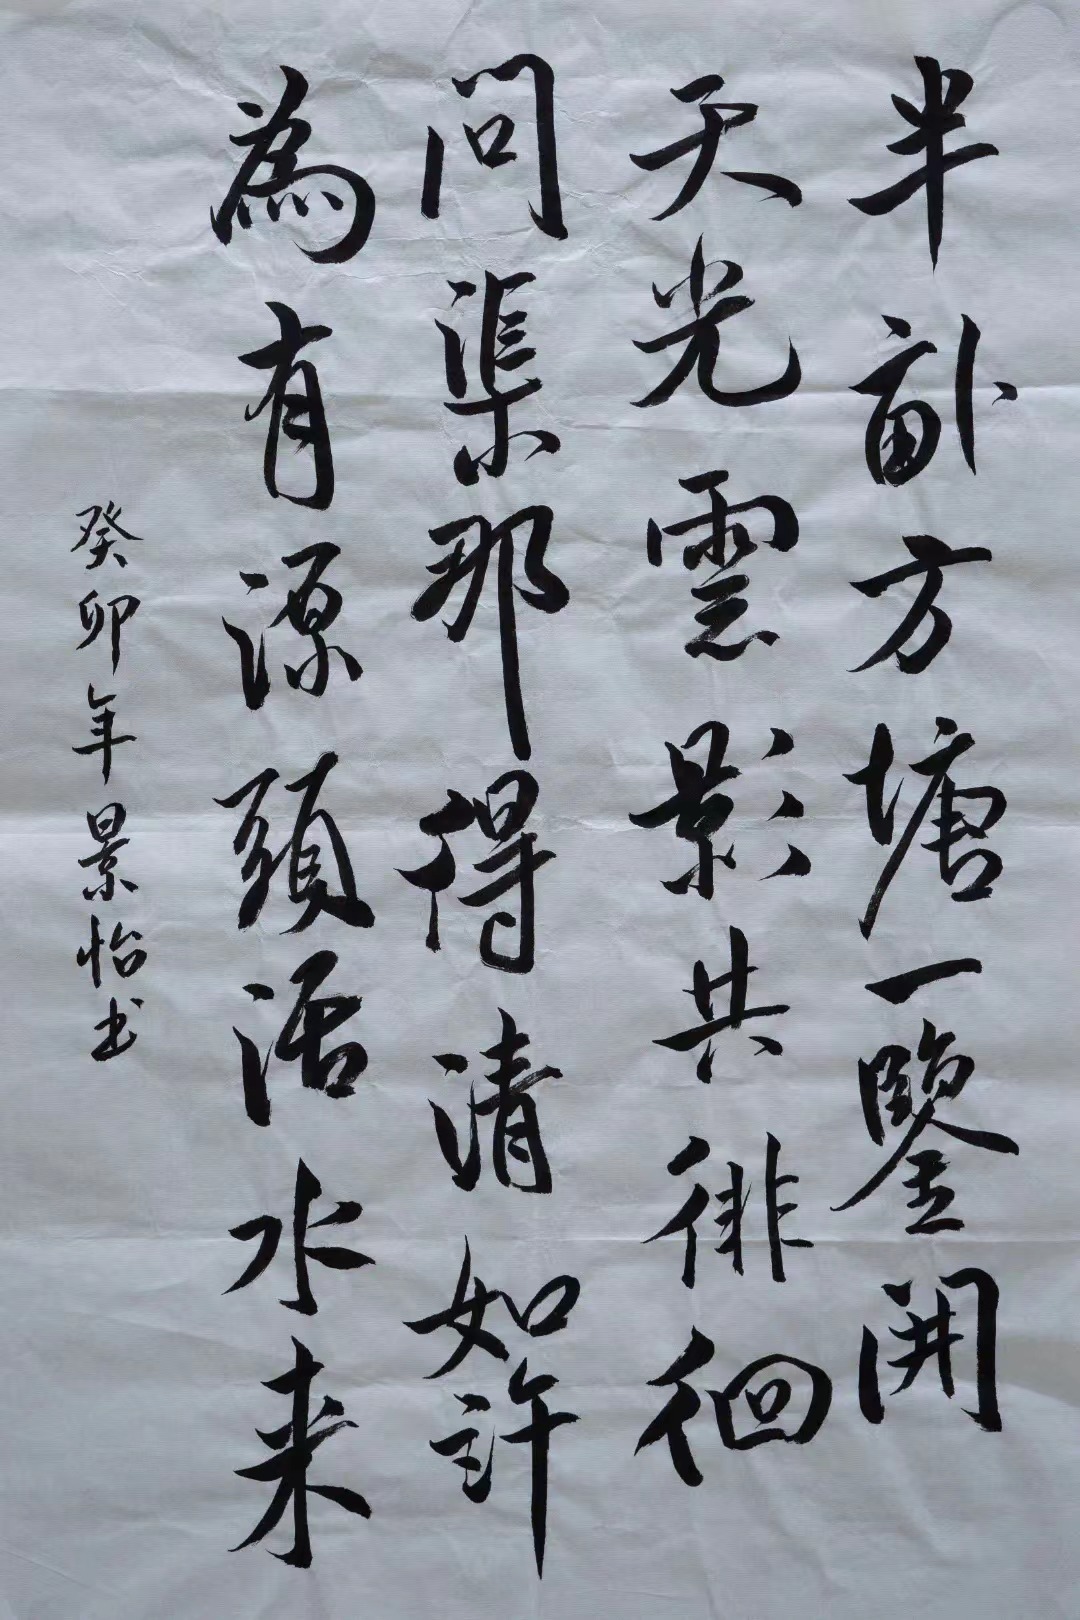 半畝方塘一鑒開
天光雲影共徘徊
問渠那得清如許
為有源頭活水来
癸卯年景怡书